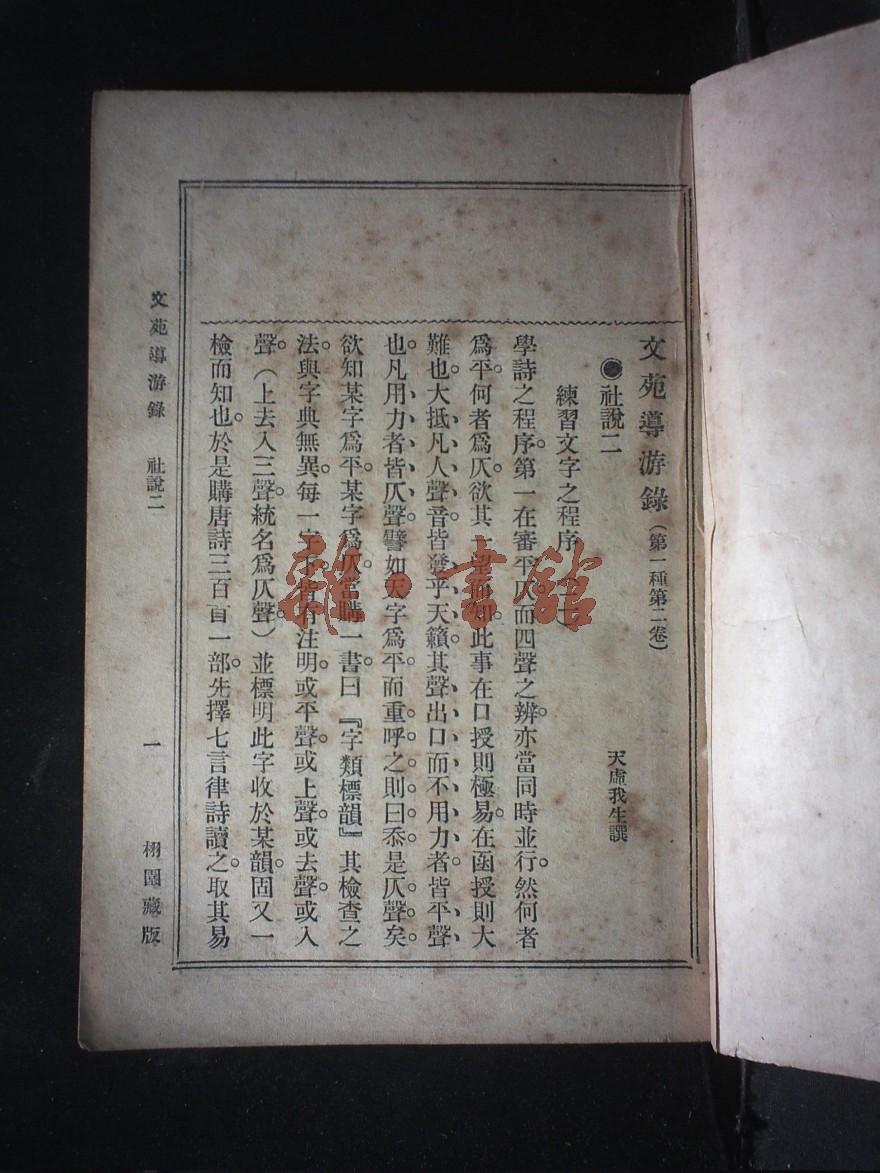 文苑導游錄（第一種第二卷）
社說二 天虛我生譔
練習文字之程序
學詩之程序。第一在審平仄。而四聲之辨。亦當同時並行。然何者
爲平。何者爲仄。欲其一望而知。此事在口授則極易。在函授則大
難也。大抵凡人聲音。皆發乎天籟。其聲出口而不用力者。皆平聲
也。凡用力者。皆仄聲。譬如天字爲平。而重呼之。則曰忝。是仄聲矣。
欲知某字爲平。某字爲仄。當購一書。曰『字類標韻』其檢查之
法。與字典無異。每一字下。皆有注明。或平聲。或上聲。或去聲。或入
聲。（上去入三聲。統名爲仄聲）並標明此字收於某韻。固又一
檢而知也。於是購唐詩三百首一部。先擇七言律詩讀之。取其易
文苑導游錄 社說二 一 栩園藏版
雜·書館